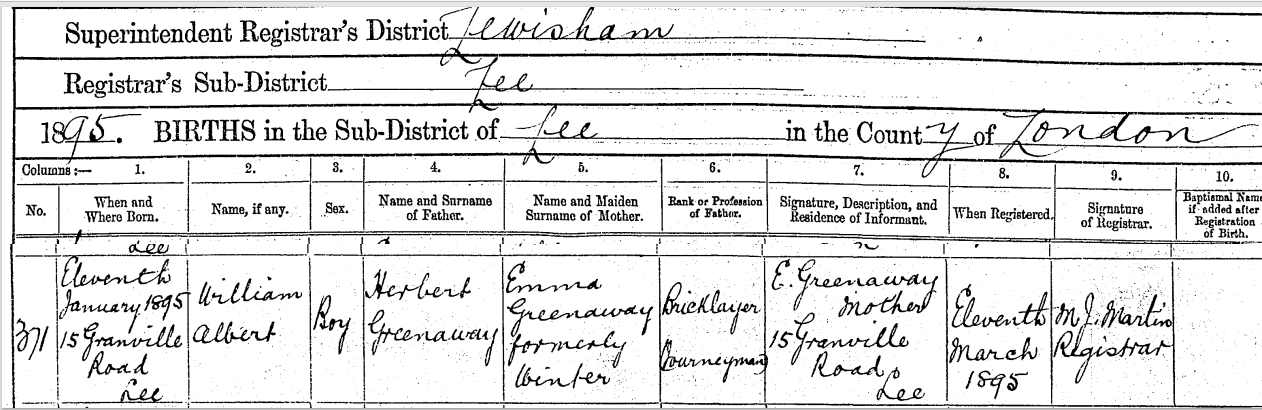 Superintendent Registrar's District Lewisham
Registrar's Sub-District Lee
1895. BIRTHS in the Sub-District of Lee in the County of London
Columns:— 1. 2. 3. 4. 5. 6. 7. 8. 9. 10.
No. When and Where Born. Name, if any. Sex. Name and Surname of Father. Name and Maiden Surname of Mother. Rank or Profession of Father. Signature, Description, and Residence of Informant. When Registered. Signature of Registrar. Baptismal Name if added after Registration of Birth.
Lee
371
Eleventh
January 1895
15 Granville
Road
Lee
William
Albert
Boy
Herbert
Greenaway
Emma
Greenaway
formerly
Winter
Bricklayer
(Journeyman)
E. Greenaway
Mother
15 Granville
Road
Lee
Eleventh
March
1895
M. J. Martin
Registrar